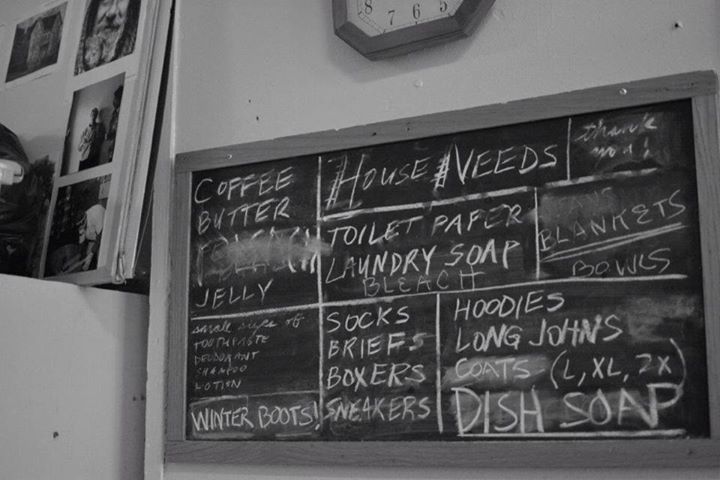 8 7 6 5
HOUSE NEEDS
thank
you!
COFFEE
BUTTER
BLEACH
JELLY
TOILET PAPER
LAUNDRY SOAP
BLEACH
BLANKETS
BOWLS
small sizes of
TOOTHPASTE
DEODORANT
SHAMPOO
LOTION
WINTER BOOTS!
SOCKS
BRIEFS
BOXERS
SNEAKERS
HOODIES
LONG JOHNS
COATS (L, XL, 2X)
DISH SOAP